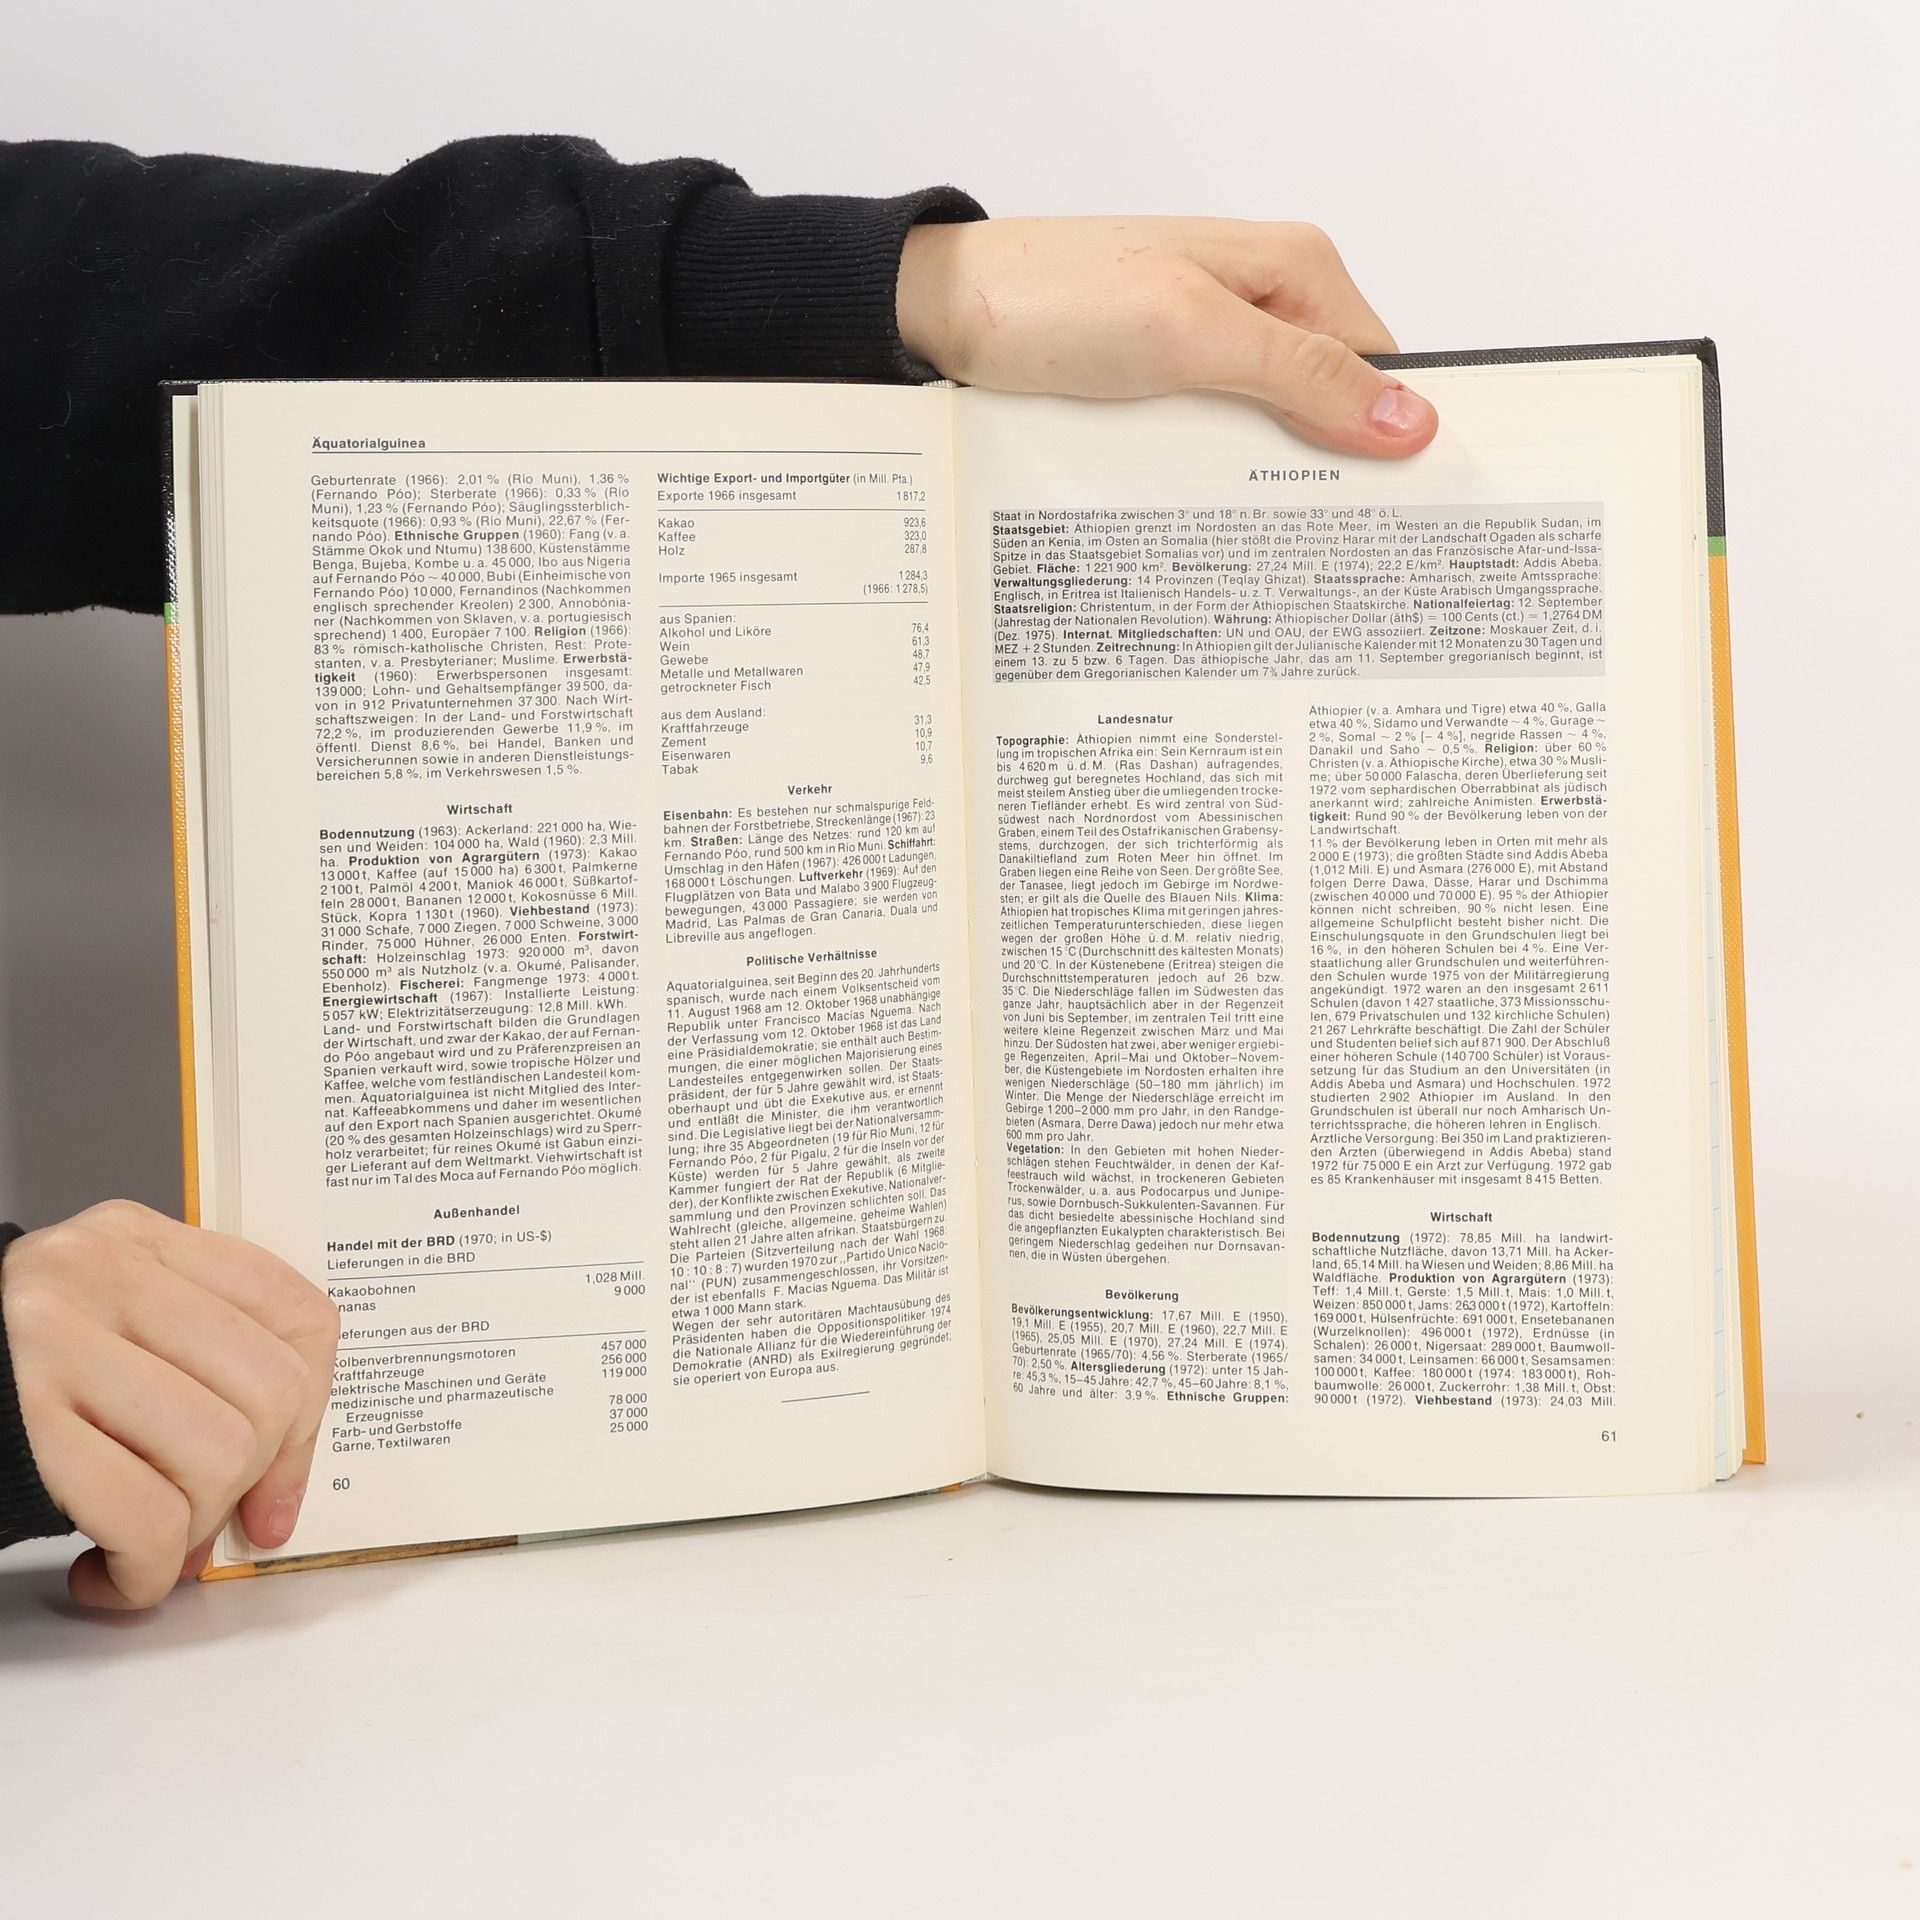 Äquatorialguinea
Geburtenrate (1966): 2,01 % (Río Muni), 1,36 %
(Fernando Póo); Sterberate (1966): 0,33 % (Río
Muni), 1,23 % (Fernando Póo); Säuglingssterblich-
keitsquote (1966): 0,93 % (Río Muni), 22,67 % (Fer-
nando Póo). Ethnische Gruppen (1960): Fang (v. a.
Stämme Okok und Ntumu) 138 600, Küstenstämme
Benga, Bujeba, Kombe u. a. 45 000, Ibo aus Nigeria
auf Fernando Póo ~ 40 000, Bubi (Einheimische von
Fernando Póo) 10 000, Fernandinos (Nachkommen
englisch sprechender Kreolen) 2 300, Annobónia-
ner (Nachkommen von Sklaven, v. a. portugiesisch
sprechend) 1 400, Europäer 7 100. Religion (1966):
83 % römisch-katholische Christen, Rest: Prote-
stanten, v. a. Presbyterianer; Muslime. Erwerbstä-
tigkeit (1960): Erwerbspersonen insgesamt:
139 000; Lohn- und Gehaltsempfänger 39 500, da-
von in 912 Privatunternehmen 37 300. Nach Wirt-
schaftszweigen: In der Land- und Forstwirtschaft
72,2 %, im produzierenden Gewerbe 11,9 %, im
öffentl. Dienst 8,6 %, bei Handel, Banken und
Versicherunnen sowie in anderen Dienstleistungs-
bereichen 5,8 %, im Verkehrswesen 1,5 %.
Wirtschaft
Bodennutzung (1963): Ackerland: 221 000 ha, Wie-
sen und Weiden: 104 000 ha, Wald (1960): 2,3 Mill.
ha. Produktion von Agrargütern (1973): Kakao
13 000 t, Kaffee (auf 15 000 ha) 6 300 t, Palmkerne
2 100 t, Palmöl 4 200 t, Maniok 46 000 t, Süßkartof-
feln 28 000 t, Bananen 12 000 t, Kokosnüsse 6 Mill.
Stück, Kopra 1 130 t (1960). Viehbestand (1973):
31 000 Schafe, 7 000 Ziegen, 7 000 Schweine, 3 000
Rinder, 75 000 Hühner, 26 000 Enten. Forstwirt-
schaft: Holzeinschlag 1973: 920 000 m³, davon
550 000 m³ als Nutzholz (v. a. Okumé, Palisander,
Ebenholz). Fischerei: Fangmenge 1973: 4 000 t.
Energiewirtschaft (1967): Installierte Leistung:
5 057 kW; Elektrizitätserzeugung: 12,8 Mill. kWh.
Land- und Forstwirtschaft bilden die Grundlagen
der Wirtschaft, und zwar der Kakao, der auf Fernan-
do Póo angebaut wird und zu Präferenzpreisen an
Spanien verkauft wird, sowie tropische Hölzer und
Kaffee, welche vom festländischen Landesteil kom-
men. Äquatorialguinea ist nicht Mitglied des Inter-
nat. Kaffeeabkommens und daher im wesentlichen
auf den Export nach Spanien ausgerichtet. Okumé
(20 % des gesamten Holzeinschlags) wird zu Sperr-
holz verarbeitet; für reines Okumé ist Gabun einzi-
ger Lieferant auf dem Weltmarkt. Viehwirtschaft ist
fast nur im Tal des Moca auf Fernando Póo möglich.
Außenhandel
Handel mit der BRD (1970; in US-$)
Lieferungen in die BRD
Kakaobohnen 1,028 Mill.
nanas 9 000
ieferungen aus der BRD
Kolbenverbrennungsmotoren 457 000
Kraftfahrzeuge 256 000
elektrische Maschinen und Geräte 119 000
medizinische und pharmazeutische
Erzeugnisse 78 000
Farb- und Gerbstoffe 37 000
Garne, Textilwaren 25 000
60
Wichtige Export- und Importgüter (in Mill. Pta.)
Exporte 1966 insgesamt 1 817,2
Kakao 923,6
Kaffee 323,0
Holz 287,8
Importe 1965 insgesamt 1 284,3
(1966: 1 278,5)
aus Spanien:
Alkohol und Liköre 76,4
Wein 61,3
Gewebe 48,7
Metalle und Metallwaren 47,9
getrockneter Fisch 42,5
aus dem Ausland:
Kraftfahrzeuge 31,3
Zement 10,9
Eisenwaren 10,7
Tabak 9,6
Verkehr
Eisenbahn: Es bestehen nur schmalspurige Feld-
bahnen der Forstbetriebe, Streckenlänge (1967): 23
km. Straßen: Länge des Netzes: rund 120 km auf
Fernando Póo, rund 500 km in Río Muni. Schiffahrt:
Umschlag in den Häfen (1967): 426 000 t Ladungen,
168 000 t Löschungen. Luftverkehr (1969): Auf den
Flugplätzen von Bata und Malabo 3 900 Flugzeug-
bewegungen, 43 000 Passagiere; sie werden von
Madrid, Las Palmas de Gran Canaria, Duala und
Libreville aus angeflogen.
Politische Verhältnisse
Äquatorialguinea, seit Beginn des 20. Jahrhunderts
spanisch, wurde nach einem Volksentscheid vom
11. August 1968 am 12. Oktober 1968 unabhängige
Republik unter Francisco Macías Nguema. Nach
der Verfassung vom 12. Oktober 1968 ist das Land
eine Präsidialdemokratie; sie enthält auch Bestim-
mungen, die einer möglichen Majorisierung eines
Landesteiles entgegenwirken sollen. Der Staats-
präsident, der für 5 Jahre gewählt wird, ist Staats-
oberhaupt und übt die Exekutive aus, er ernennt
und entläßt die Minister, die ihm verantwortlich
sind. Die Legislative liegt bei der Nationalversamm-
lung; ihre 35 Abgeordneten (19 für Río Muni, 12 für
Fernando Póo, 2 für Pigalu, 2 für die Inseln vor der
Küste) werden für 5 Jahre gewählt, als zweite
Kammer fungiert der Rat der Republik (6 Mitglie-
der), der Konflikte zwischen Exekutive, Nationalver-
sammlung und den Provinzen schlichten soll. Das
Wahlrecht (gleiche, allgemeine, geheime Wahlen)
steht allen 21 Jahre alten afrikan. Staatsbürgern zu.
Die Parteien (Sitzverteilung nach der Wahl 1968:
10 : 10 : 8 : 7) wurden 1970 zur „Partido Unico Nacio-
nal'' (PUN) zusammengeschlossen, ihr Vorsitzen-
der ist ebenfalls F. Macías Nguema. Das Militär ist
etwa 1 000 Mann stark.
Wegen der sehr autoritären Machtausübung des
Präsidenten haben die Oppositionspolitiker 1974
die Nationale Allianz für die Wiedereinführung der
Demokratie (ANRD) als Exilregierung gegründet;
sie operiert von Europa aus.
ÄTHIOPIEN
Staat in Nordostafrika zwischen 3° und 18° n. Br. sowie 33° und 48° ö. L.
Staatsgebiet: Äthiopien grenzt im Nordosten an das Rote Meer, im Westen an die Republik Sudan, im
Süden an Kenia, im Osten an Somalia (hier stößt die Provinz Harar mit der Landschaft Ogaden als scharfe
Spitze in das Staatsgebiet Somalias vor) und im zentralen Nordosten an das Französische Afar-und-Issa-
Gebiet. Fläche: 1 221 900 km². Bevölkerung: 27,24 Mill. E (1974); 22,2 E/km². Hauptstadt: Addis Abeba.
Verwaltungsgliederung: 14 Provinzen (Teqlay Ghizat). Staatssprache: Amharisch, zweite Amtssprache:
Englisch, in Eritrea ist Italienisch Handels- u. z. T. Verwaltungs-, an der Küste Arabisch Umgangssprache.
Staatsreligion: Christentum, in der Form der Äthiopischen Staatskirche. Nationalfeiertag: 12. September
(Jahrestag der Nationalen Revolution). Währung: Äthiopischer Dollar (äth$) = 100 Cents (ct.) = 1,2764 DM
(Dez. 1975). Internat. Mitgliedschaften: UN und OAU, der EWG assoziiert. Zeitzone: Moskauer Zeit, d. i.
MEZ + 2 Stunden. Zeitrechnung: In Äthiopien gilt der Julianische Kalender mit 12 Monaten zu 30 Tagen und
einem 13. zu 5 bzw. 6 Tagen. Das äthiopische Jahr, das am 11. September gregorianisch beginnt, ist
gegenüber dem Gregorianischen Kalender um 7¾ Jahre zurück.
Landesnatur
Topographie: Äthiopien nimmt eine Sonderstel-
lung im tropischen Afrika ein: Sein Kernraum ist ein
bis 4 620 m ü. d. M. (Ras Dashan) aufragendes,
durchweg gut beregnetes Hochland, das sich mit
meist steilem Anstieg über die umliegenden trocke-
neren Tiefländer erhebt. Es wird zentral von Süd-
südwest nach Nordnordost vom Abessinischen
Graben, einem Teil des Ostafrikanischen Grabensy-
stems, durchzogen, der sich trichterförmig als
Danakiltiefland zum Roten Meer hin öffnet. Im
Graben liegen eine Reihe von Seen. Der größte See,
der Tanasee, liegt jedoch im Gebirge im Nordwe-
sten; er gilt als die Quelle des Blauen Nils. Klima:
Äthiopien hat tropisches Klima mit geringen jahres-
zeitlichen Temperaturunterschieden, diese liegen
wegen der großen Höhe ü. d. M. relativ niedrig,
zwischen 15 °C (Durchschnitt des kältesten Monats)
und 20 °C. In der Küstenebene (Eritrea) steigen die
Durchschnittstemperaturen jedoch auf 26 bzw.
35 °C. Die Niederschläge fallen im Südwesten das
ganze Jahr, hauptsächlich aber in der Regenzeit
von Juni bis September, im zentralen Teil tritt eine
weitere kleine Regenzeit zwischen März und Mai
hinzu. Der Südosten hat zwei, aber weniger ergiebi-
ge Regenzeiten, April–Mai und Oktober–Novem-
ber, die Küstengebiete im Nordosten erhalten ihre
wenigen Niederschläge (50–180 mm jährlich) im
Winter. Die Menge der Niederschläge erreicht im
Gebirge 1 200–2 000 mm pro Jahr, in den Randge-
bieten (Asmara, Derre Dawa) jedoch nur mehr etwa
600 mm pro Jahr.
Vegetation: In den Gebieten mit hohen Nieder-
schlägen stehen Feuchtwälder, in denen der Kaf-
feestrauch wild wächst, in trockeneren Gebieten
Trockenwälder, u. a. aus Podocarpus und Junipe-
rus, sowie Dornbusch-Sukkulenten-Savannen. Für
das dicht besiedelte abessinische Hochland sind
die angepflanzten Eukalypten charakteristisch. Bei
geringem Niederschlag gedeihen nur Dornsavan-
nen, die in Wüsten übergehen.
Bevölkerung
Bevölkerungsentwicklung: 17,67 Mill. E (1950),
19,1 Mill. E (1955), 20,7 Mill. E (1960), 22,7 Mill. E
(1965), 25,05 Mill. E (1970), 27,24 Mill. E (1974).
Geburtenrate (1965/70): 4,56 %. Sterberate (1965/
70): 2,50 %. Altersgliederung (1972): unter 15 Jah-
re: 45,3 %, 15–45 Jahre: 42,7 %, 45–60 Jahre: 8,1 %,
60 Jahre und älter: 3,9 %. Ethnische Gruppen:
Äthiopier (v. a. Amhara und Tigre) etwa 40 %, Galla
etwa 40 %, Sidamo und Verwandte ~ 4 %, Gurage ~
2 %, Somal ~ 2 % [– 4 %], negride Rassen ~ 4 %,
Danakil und Saho ~ 0,5 %. Religion: über 60 %
Christen (v. a. Äthiopische Kirche), etwa 30 % Musli-
me; über 50 000 Falascha, deren Überlieferung seit
1972 vom sephardischen Oberrabbinat als jüdisch
anerkannt wird; zahlreiche Animisten. Erwerbstä-
tigkeit: Rund 90 % der Bevölkerung leben von der
Landwirtschaft.
11 % der Bevölkerung leben in Orten mit mehr als
2 000 E (1973); die größten Städte sind Addis Abeba
(1,012 Mill. E) und Asmara (276 000 E), mit Abstand
folgen Derre Dawa, Dässe, Harar und Dschimma
(zwischen 40 000 und 70 000 E). 95 % der Äthiopier
können nicht schreiben, 90 % nicht lesen. Eine
allgemeine Schulpflicht besteht bisher nicht. Die
Einschulungsquote in den Grundschulen liegt bei
16 %, in den höheren Schulen bei 4 %. Eine Ver-
staatlichung aller Grundschulen und weiterführen-
den Schulen wurde 1975 von der Militärregierung
angekündigt. 1972 waren an den insgesamt 2 611
Schulen (davon 1 427 staatliche, 373 Missionsschu-
len, 679 Privatschulen und 132 kirchliche Schulen)
21 267 Lehrkräfte beschäftigt. Die Zahl der Schüler
und Studenten belief sich auf 871 900. Der Abschluß
einer höheren Schule (140 700 Schüler) ist Voraus-
setzung für das Studium an den Universitäten (in
Addis Abeba und Asmara) und Hochschulen. 1972
studierten 2 902 Äthiopier im Ausland. In den
Grundschulen ist überall nur noch Amharisch Un-
terrichtssprache, die höheren lehren in Englisch.
Ärztliche Versorgung: Bei 350 im Land praktizieren-
den Ärzten (überwiegend in Addis Abeba) stand
1972 für 75 000 E ein Arzt zur Verfügung. 1972 gab
es 85 Krankenhäuser mit insgesamt 8 415 Betten.
Wirtschaft
Bodennutzung (1972): 78,85 Mill. ha landwirt-
schaftliche Nutzfläche, davon 13,71 Mill. ha Acker-
land, 65,14 Mill. ha Wiesen und Weiden; 8,86 Mill. ha
Waldfläche. Produktion von Agrargütern (1973):
Teff: 1,4 Mill. t, Gerste: 1,5 Mill. t, Mais: 1,0 Mill. t,
Weizen: 850 000 t, Jams: 263 000 t (1972), Kartoffeln:
169 000 t, Hülsenfrüchte: 691 000 t, Ensetebananen
(Wurzelknollen): 496 000 t (1972), Erdnüsse (in
Schalen): 26 000 t, Nigersaat: 289 000 t, Baumwoll-
samen: 34 000 t, Leinsamen: 66 000 t, Sesamsamen:
100 000 t, Kaffee: 180 000 t (1974: 183 000 t), Roh-
baumwolle: 26 000 t, Zuckerrohr: 1,38 Mill. t, Obst:
90 000 t (1972). Viehbestand (1973): 24,03 Mill.
61